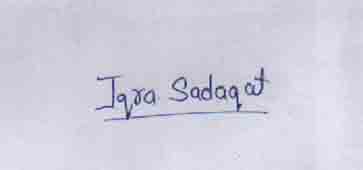 Iqra Sadaqat